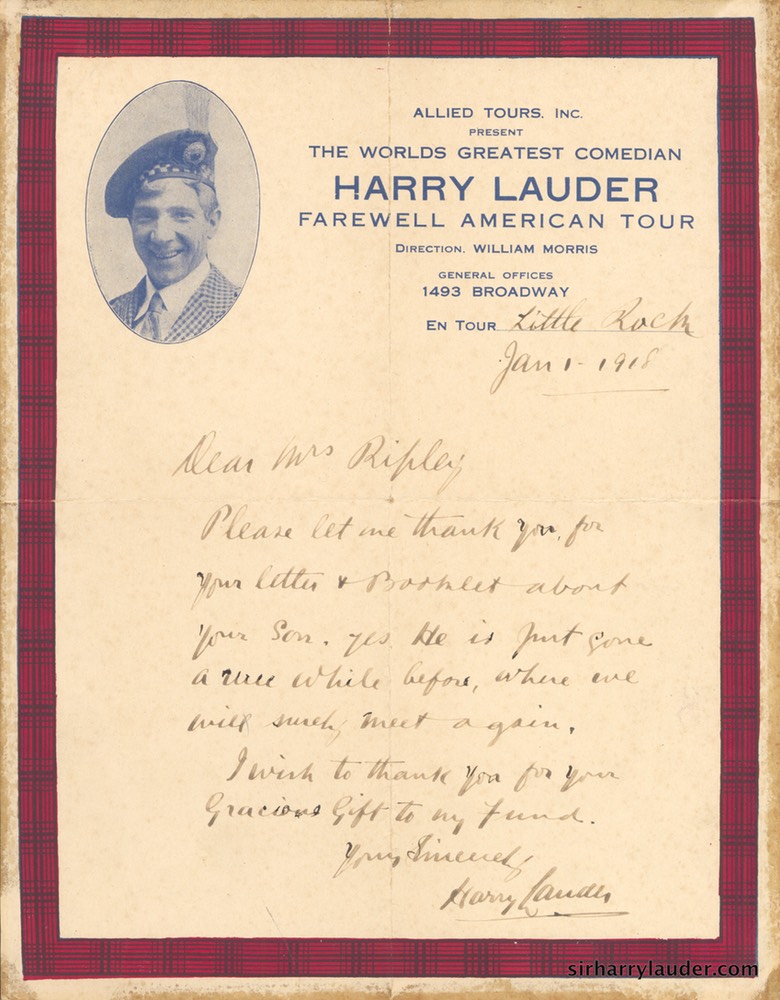 ALLIED TOURS. INC.
PRESENT
THE WORLDS GREATEST COMEDIAN
HARRY LAUDER
FAREWELL AMERICAN TOUR
DIRECTION. WILLIAM MORRIS
GENERAL OFFICES
1493 BROADWAY
EN TOUR Little Rock
Jan 1 - 1918
Dear Mrs Ripley
Please let me thank you, for
your letter & Booklet about
your Son. yes He is Just gone
a wee while before, where we
will surely meet again.
I wish to thank you for your
Gracious Gift to my Fund.
Yours Sincerely
Harry Lauder
sirharrylauder.com